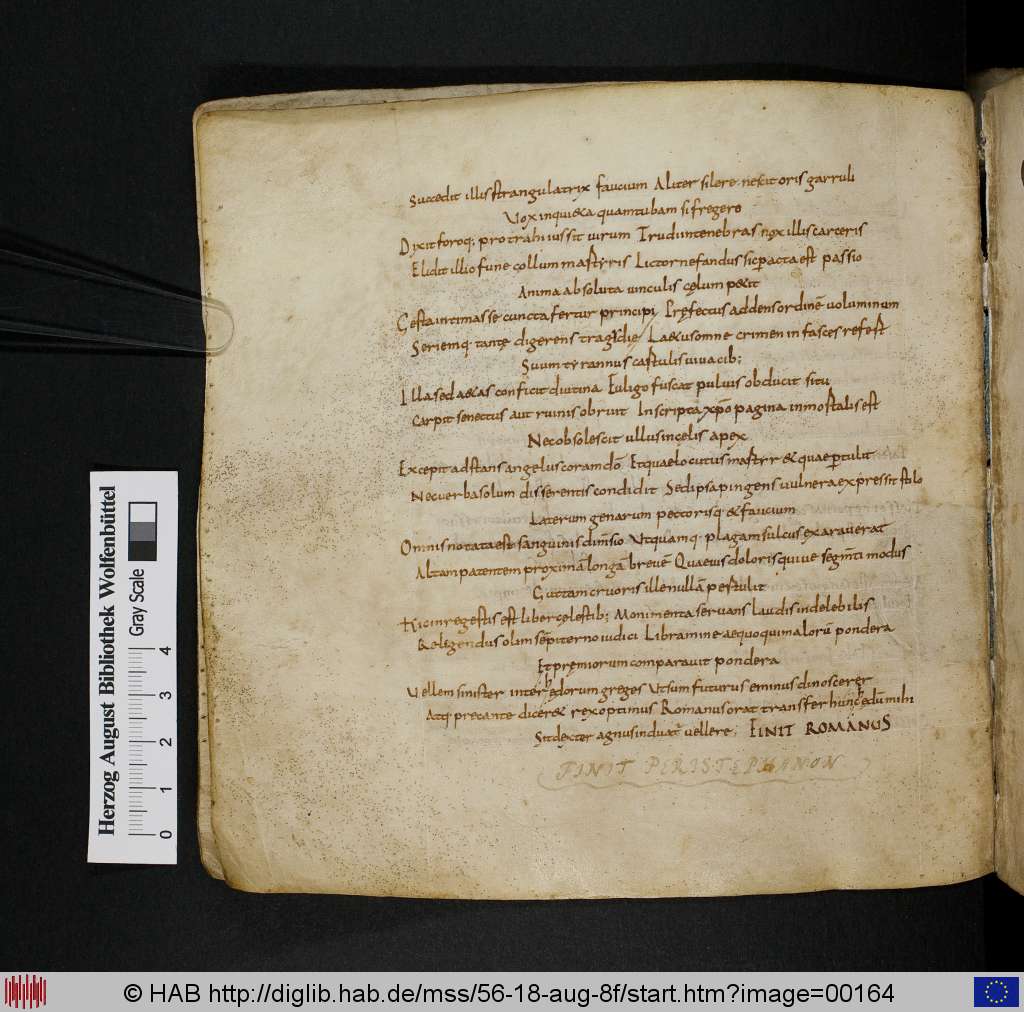 Succedit illi strangulatrix faucium Aliter silere nescit oris garruli
Vox inquieta quam tubam si fregero
Dixit foroq; protrahi iussit uirum Trudunt enebras nox illi s carceris
Elidit illic fune collum martyris Lictor nefandus sic peracta est passio
Anima absoluta uinculis cęlum petit
Gesta intimasse cuncta fertur principi Pręfectus addens ordinē uoluminum
Seriemq. tantę digerens tragędię Laetus omne crimen in fasces refert
Suum tyrannus cartulis uiuacib;
Illa sed aetas conficit diutina Fuligo fuscat puluis obducit situ
Carpit senectus aut ruinis obruit Inscripta xp̄o pagina inmortalis est
Nec obsolescit ullus in cęlis apex
Excepit adstans angelus coram dō Et quae locutus martyr & quae ptulit
Nec uerba solum disserentis condidit Sed ipsa pingens uulnera expressit stilo
Laterum genarum pectorisq & faucium
Omnis notata est sanguinis dimsio Vt quamq. plagam sulcus exarauerat
Altam patentem proximā longā breuē Quae uis doloris qui uę segmti modus
Guttam cruoris ille nullā perdidit
Hic in regestis est liber cęlestib; Monimenta seruans laudis indelebilis
Relegendus olim sēpiterno iudici Libramine aequo qui malorū pondera
Et pręmiorum comparauit pondera
Vellem sinister inter hędorum greges Vt sum futurus eminus dinoscerer
Atq; precante diceret rex optimus Romanus orat transfer hunc hędū mihi
Sit dexter agnus induat uellere; FINIT ROMANUS
FINIT PERISTEPHANON
Herzog August Bibliothek Wolfenbüttel
Gray Scale
0 1 2 3 4
© HAB http://diglib.hab.de/mss/56-18-aug-8f/start.htm?image=00164